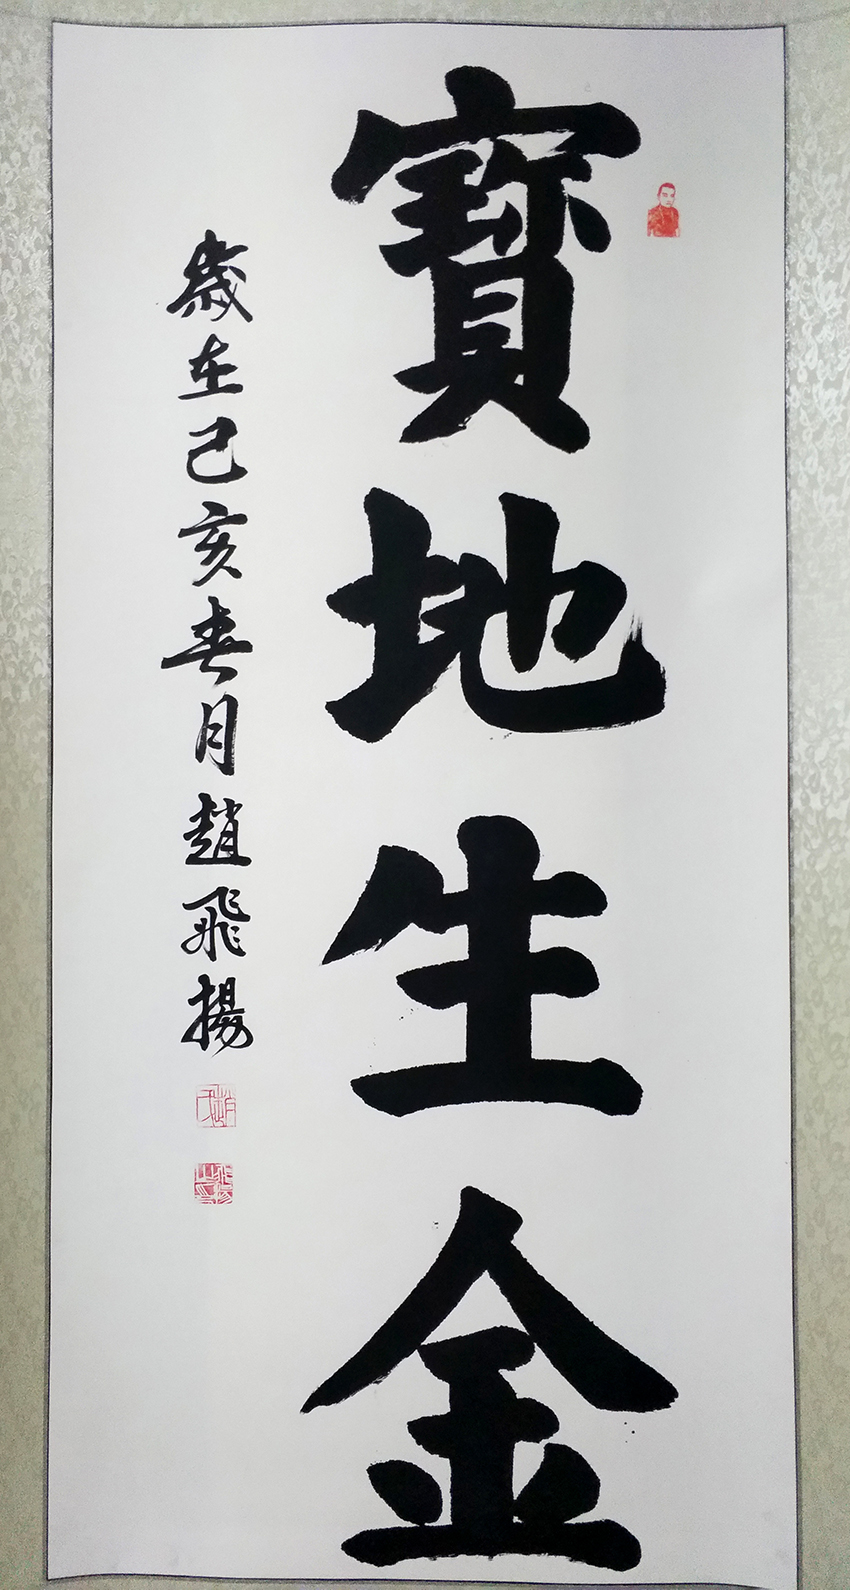 寳地生金
歳在己亥春月趙飛揚